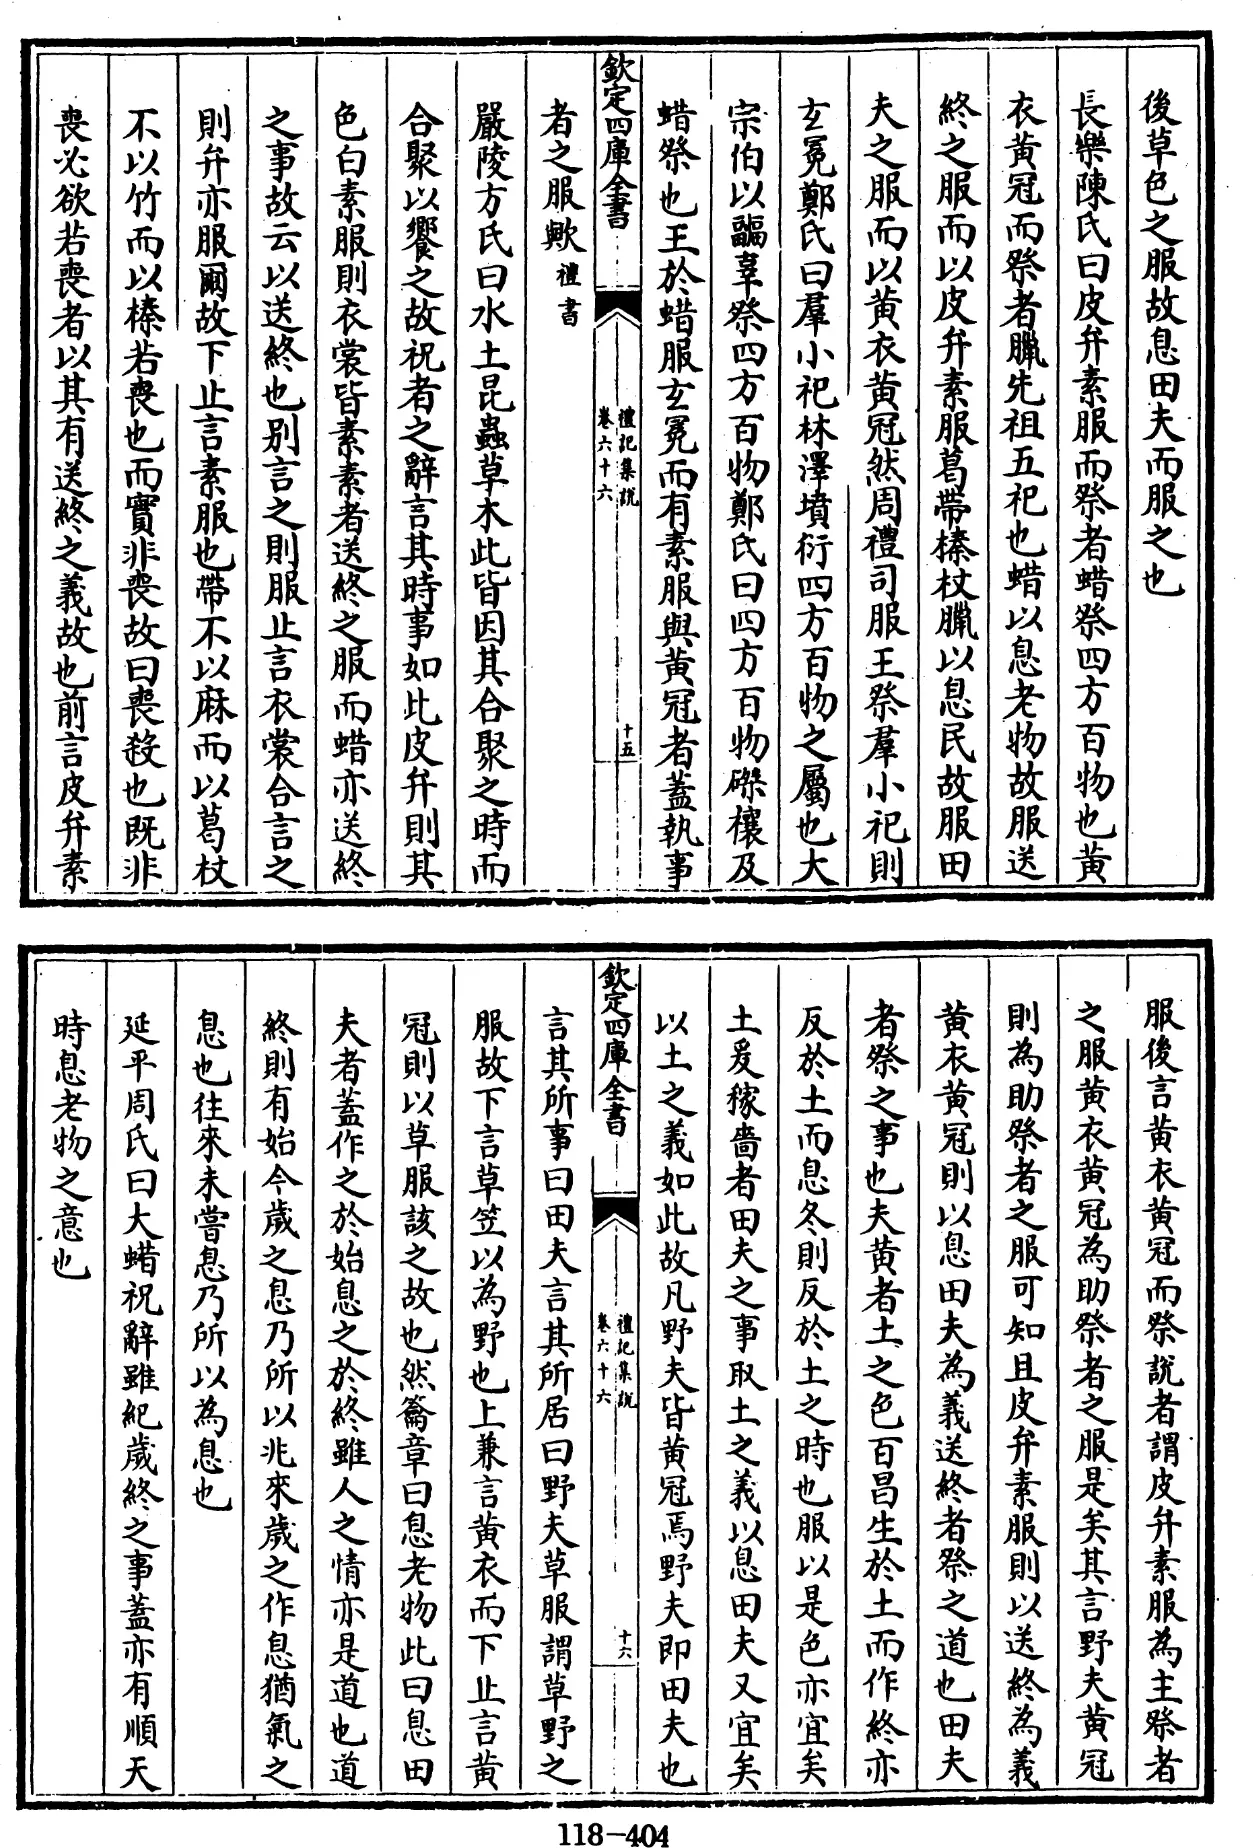 後草色之服故息田夫而服之也
長樂陳氏曰皮弁素服而祭者蜡祭四方百物也黃
衣黃冠而祭者臘先祖五祀也蜡以息老物故服送
終之服而以皮弁素服葛帶榛杖臘以息民故服田
夫之服而以黃衣黃冠然周禮司服王祭羣小祀則
玄冕鄭氏曰羣小祀林澤墳衍四方百物之屬也大
宗伯以疈辜祭四方百物鄭氏曰四方百物磔禳及
蜡祭也王於蜡服玄冕而有素服與黃冠者蓋執事
欽定四庫全書
禮記集說
卷六十六
十五
者之服歟禮書
嚴陵方氏曰水土昆蟲草木此皆因其合聚之時而
合聚以饗之故祝者之辭言其時事如此皮弁則其
色白素服則衣裳皆素素者送終之服而蜡亦送終
之事故云以送終也別言之則服止言衣裳合言之
則弁亦服爾故下止言素服也帶不以麻而以葛杖
不以竹而以榛若喪也而實非喪故曰喪殺也既非
喪必欲若喪者以其有送終之義故也前言皮弁素
服後言黃衣黃冠而祭說者謂皮弁素服為主祭者
之服黃衣黃冠為助祭者之服是矣其言野夫黃冠
則為助祭者之服可知且皮弁素服則以送終為義
黃衣黃冠則以息田夫為義送終者祭之道也田夫
者祭之事也夫黃者土之色百昌生於土而作終亦
反於土而息冬則反於土之時也服以是色亦宜矣
土爰稼嗇者田夫之事取土之義以息田夫又宜矣
以土之義如此故凡野夫皆黃冠焉野夫即田夫也
欽定四庫全書
禮記集說
卷六十六
十六
言其所事曰田夫言其所居曰野夫草服謂草野之
服故下言草笠以為野也上兼言黃衣而下止言黃
冠則以草服該之故也然籥章曰息老物此曰息田
夫者蓋作之於始息之於終雖人之情亦是道也道
終則有始今歲之息乃所以兆來歲之作息猶氣之
息也往來未嘗息乃所以為息也
延平周氏曰大蜡祝辭雖紀歲終之事蓋亦有順天
時息老物之意也
118-404